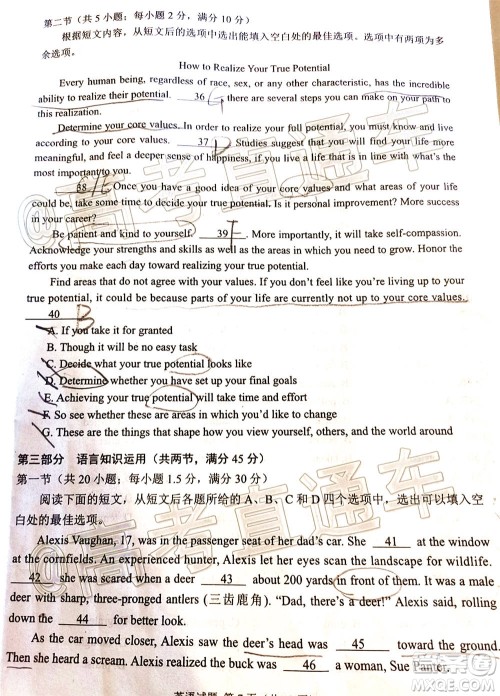 第二节（共5小题；每小题2分，满分10分）
根据短文内容，从短文后的选项中选出能填入空白处的最佳选项。选项中有两项为多
余选项。
How to Realize Your True Potential
Every human being, regardless of race, sex, or any other characteristic, has the incredible
ability to realize their potential. 36 there are several steps you can make on your path to
this realization.
Determine your core values. In order to realize your full potential, you must know and live
according to your core values. 37 D Studies suggest that you will find your life more
meaningful, and feel a deeper sense of happiness, if you live a life that is in line with what's the
most important to you.
38 Once you have a good idea of your core values and what areas of your life
could be, take some time to decide your true potential. Is it personal improvement? More success
in your career?
Be patient and kind to yourself. 39 F. More importantly, it will take self-compassion.
Acknowledge your strengths and skills as well as the areas in which you need to grow. Honor the
efforts you make each day toward realizing your true potential.
Find areas that do not agree with your values. If you don't feel like you're living up to your
true potential, it could be because parts of your life are currently not up to your core values.
40 B
A. If you take it for granted
B. Though it will be no easy task
C. Decide what your true potential looks like
D. Determine whether you have set up your final goals
E. Achieving your true potential will take time and effort
F. So see whether these are areas in which you'd like to change
G. These are the things that shape how you view yourself, others, and the world around
第三部分 语言知识运用（共两节，满分45分）
第一节（共20小题；每小题1.5分，满分30分）
阅读下面的短文，从短文后各题所给的A、B、C和D四个选项中，选出可以填入空
白处的最佳选项。
Alexis Vaughan, 17, was in the passenger seat of her dad's car. She 41 at the window
at the cornfields. An experienced hunter, Alexis let her eyes scan the landscape for wildlife.
42 she was scared when a deer 43 about 200 yards in front of them. It was a male
deer with sharp, three-pronged antlers (三齿鹿角). "Dad, there's a deer!" Alexis said, rolling
down the 44 for better look.
As the car moved closer, Alexis saw the deer's head was 45 toward the ground.
Then she heard a scream. Alexis realized the buck was 46 a woman, Sue Panter.
英语试题
@高考直通车
@高考直通车